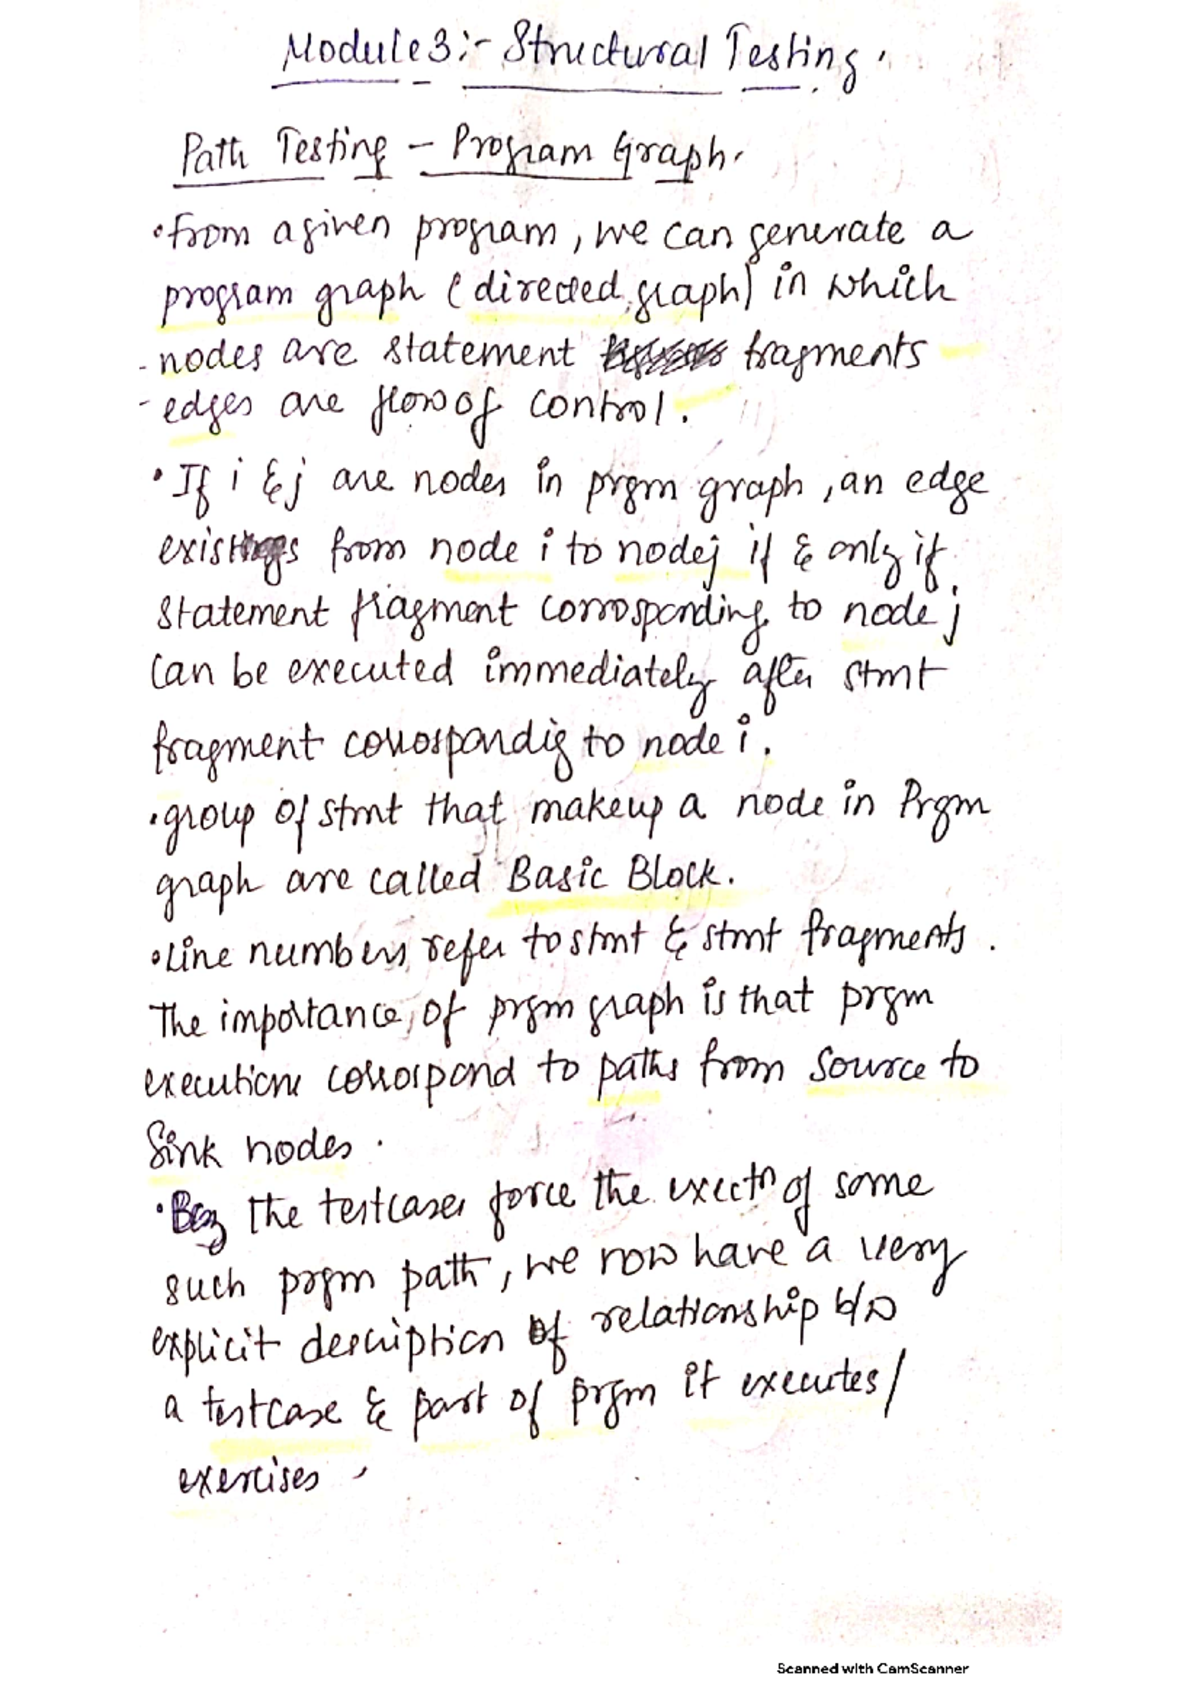 Module 3:- Structural Testing.
Path Testing - Program Graph.
• from a given program, we can generate a
program graph (directed graph) in which
- nodes are statement fragments
- edges are flow of control.
• If i & j are nodes in prgm graph, an edge
exists from node i to node j if & only if
statement fragment corrosponding to node j
can be executed immediately after stmt
fragment corrospondig to node i.
• group of stmt that makeup a node in Prgm
graph are called Basic Block.
• Line numbers refer to stmt & stmt fragments.
The importance of prgm graph is that prgm
executions corrospond to paths from source to
Sink nodes.
• Bcz the testcases force the exectn of some
such prgm path, we now have a very
explicit description of relationship b/w
a testcase & part of prgm it executes/
exercises.
Scanned with CamScanner